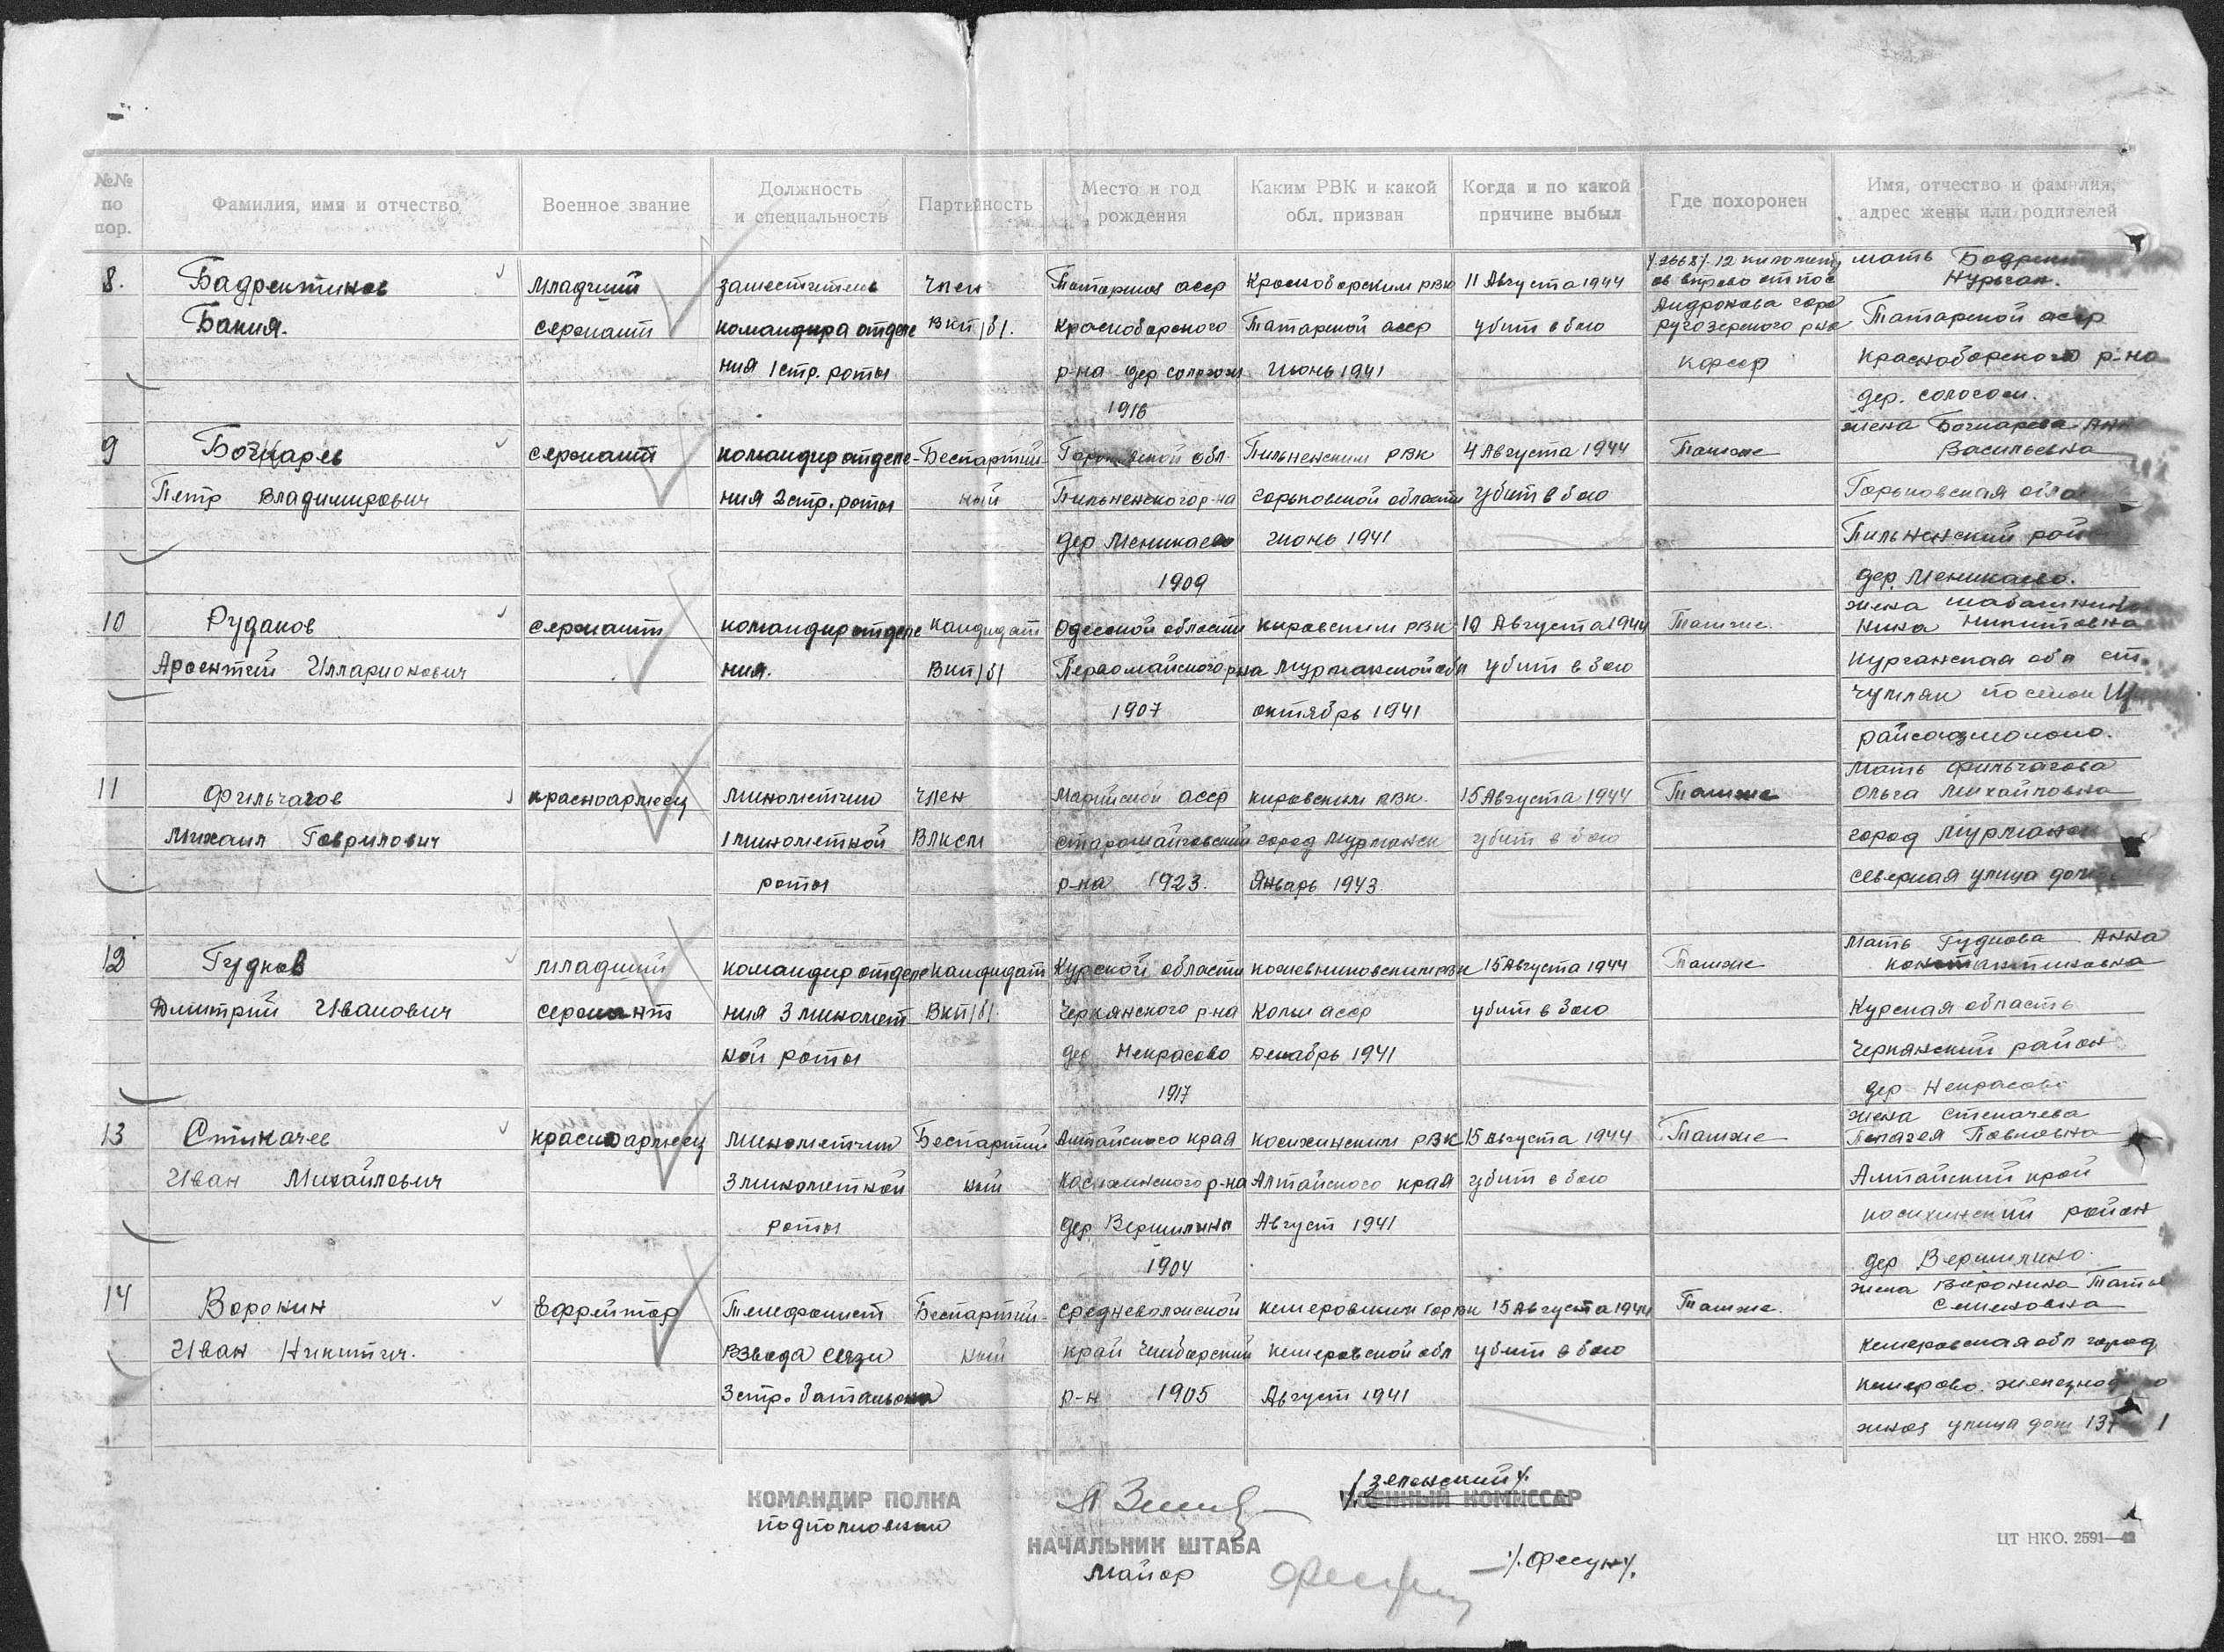 №№ по пор.
Фамилия, имя и отчество
Военное звание
Должность и специальность
Партийность
Место и год рождения
Каким РВК и какой обл. призван
Когда и по какой причине выбыл
Где похоронен
Имя, отчество и фамилия, адрес жены или родителей
8.
Бадрентинов
Бакия.
младший
сержант
заместитель
командира отделе
ния 1 стр. роты
член
ВКП/б/.
Татарская асср
красноборского
р-на дер
1916
Красноборским рвк
Татарской асср
Июнь 1941
11 Августа 1944
убит в бою
12 километр
ов вправо от пос
Андронова гора
ругозерского р-на
кфсср
мать
Татарской асср
красноборского р-на
дер.
9
Бочкарев
Петр Владимирович
сержант
командир отделе-
ния 2 стр. роты
Беспартий-
ный
Горьковской обл.
Пильненского р-на
дер Меникаево
1909
Пильненским РВК
горьковской области
Июнь 1941
4 Августа 1944
убит в бою
Также
жена Бочкарева Анна
Васильевна
Горьковская
Пильненский
дер. Меникаево.
10
Рудаков
Арсентий Илларионович
сержант
командир отделе
ния.
кандидат
ВКП/б/
Одесской области
Первомайского р-на
1907
кировским РВК
Мурманской обл
октябрь 1941
10 Августа 1944
убит в бою
Также.
жена
Нина Никитовна
Курганская обл ст.
чумляк поселок
11
Фильчагов
Михаил Гаврилович
красноармеец
минометчик
1 минометной
роты
член
ВЛКСМ
Марийской асср
р-на 1923.
кировским рвк.
город Мурманск
Январь 1943
15 Августа 1944
убит в бою
Также
Мать Фильчагова
Ольга Михайловна
город Мурманск
северная улица дом
12
Гуднов
Дмитрий Иванович
младший
сержант
командир отделе
ния 3 миномет-
ной роты
кандидат
ВКП/б/.
Курской области
Чернянского р-на
дер Некрасово
1917
кожевниковским рвк
Коми асср
декабрь 1941
15 Августа 1944
убит в бою
Также
Мать Гуднова Анна
константиновна
Курская область
Чернянский район
дер Некрасово
13
Стикачев
Иван Михайлович
красноармеец
минометчик
3 минометной
роты
Беспартий
ный
Алтайского края
Косихинского р-на
дер. Вершинина
1904
косихинским РВК
Алтайского края
Август 1941
15 Августа 1944
убит в бою
Также
жена
Пелагея Павловна
Алтайский край
косихинский район
дер
14
Воронин
Иван Никитич.
Ефрейтор
Телефонист
взвода связи
3 стр. батальона
Беспартий-
ный
Средневолжской
край Чембарский
р-н 1905
кемеровским горвк
кемеровской обл
Август 1941
15 Августа 1944
убит в бою
Также.
жена Воронина
Семеновна
Кемеровская обл город
Кемерово.
улица дом 137
КОМАНДИР ПОЛКА
подполковник
/Зеленский/.
ВОЕННЫЙ КОМИССАР
НАЧАЛЬНИК ШТАБА
Майор
/.Фесун/.
ЦТ НКО. 2591—42